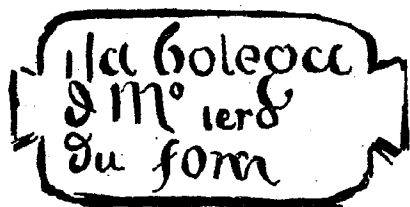 la botega
d Mº
du forn